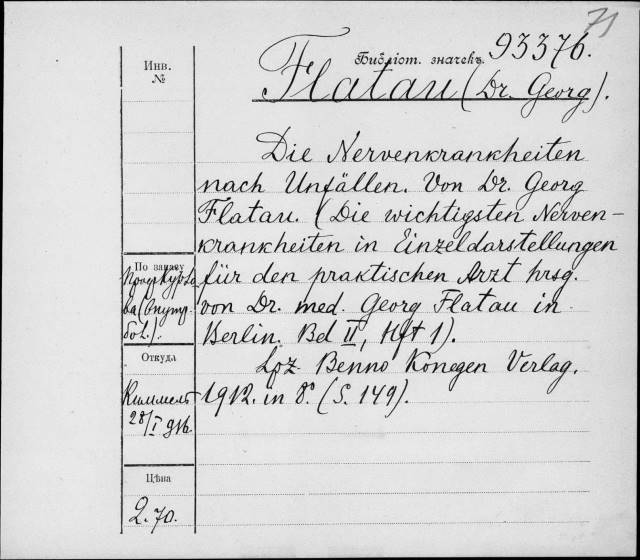 71
Библіот. значекъ 93376.
Flatau (Dr. Georg).
Инв.
№
Die Nervenkrankheiten
nach Unfällen. Von Dr. Georg
Flatau. (Die wichtigsten Nerven-
krankheiten in Einzeldarstellungen
für den praktischen Arzt hrsg.
von Dr. med. Georg Flatau in
Berlin. Bd II, Hft 1).
Lpz. Benno Konegen Verlag.
1912. in 8°. (S. 149).
По заказу
Откуда
Киммель
28/I 916.
Цѣна
2.70.